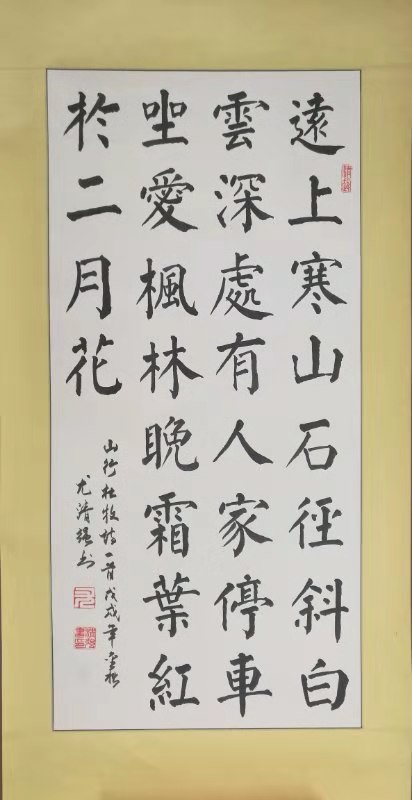 遠上寒山石徑斜白
雲深處有人家停車
坐愛楓林晚霜葉紅
於二月花
山行杜牧诗一首戊戌年金秋
尤清强书